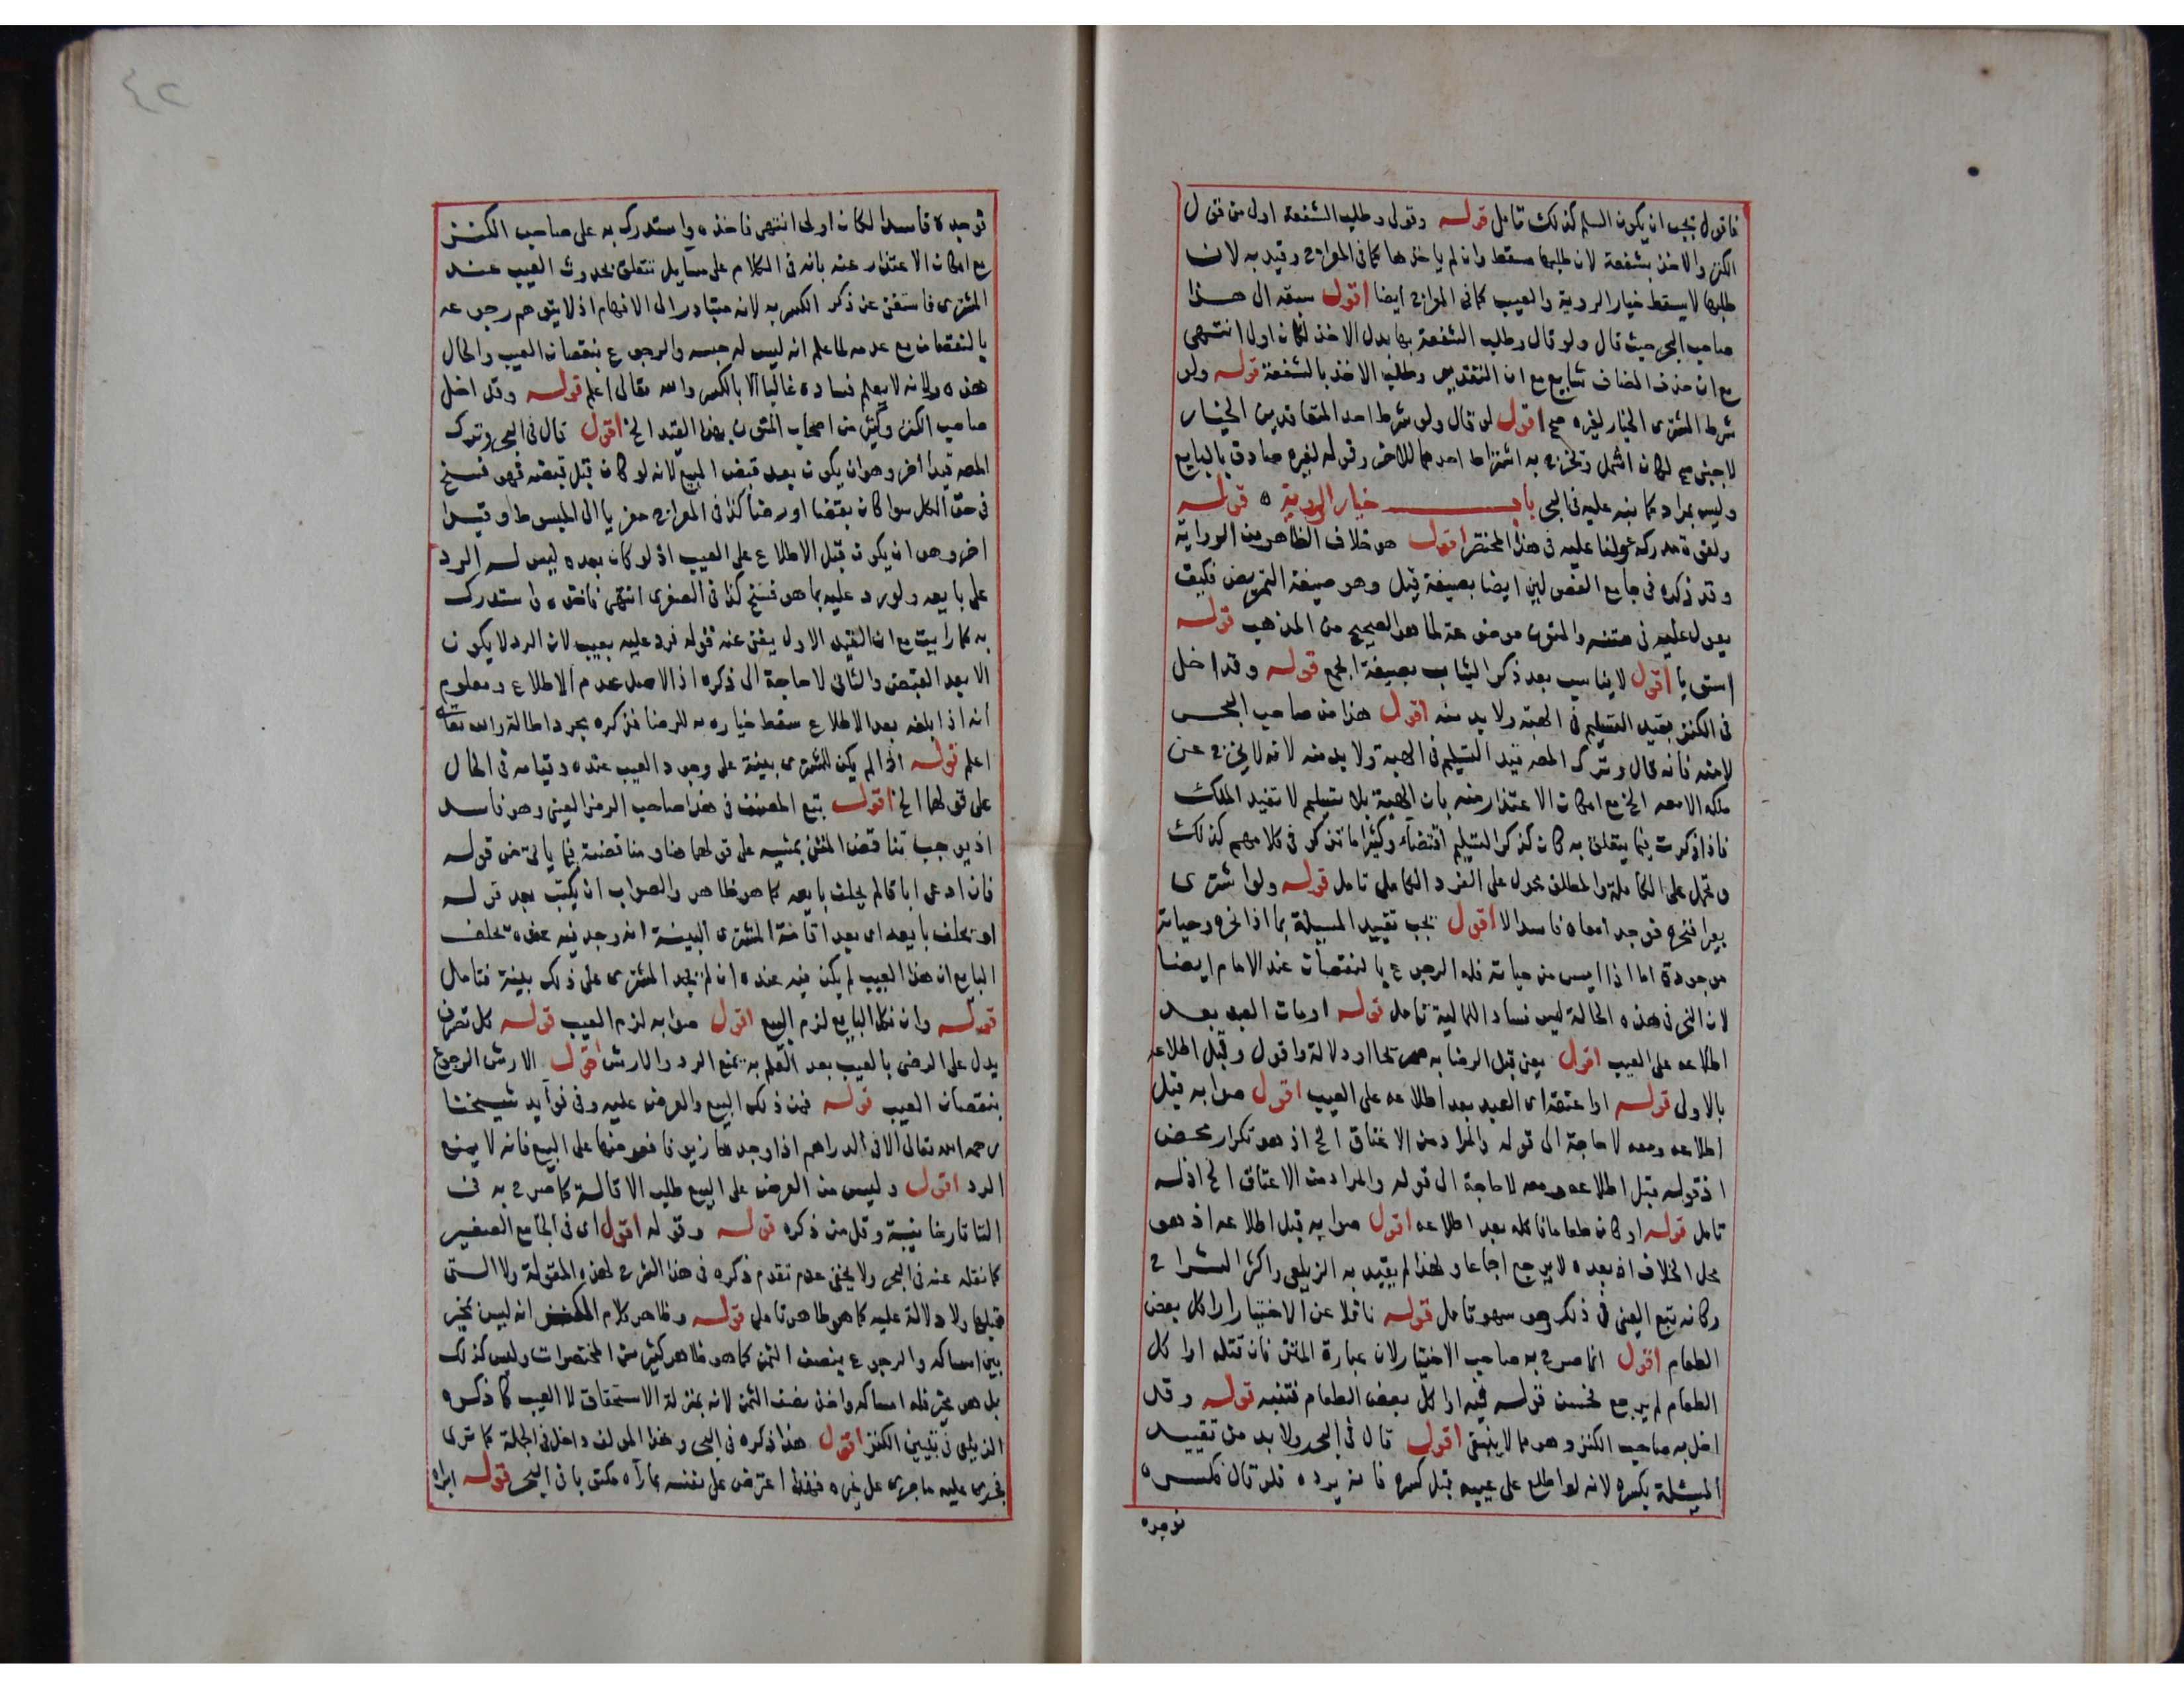 فاقول يجب ان يكون السلم كذلك تامل قوله وقولى وطلب الشفعة اولى من قول
الكنز والاخذ بشفعة لان طلبها مسقط وان لم ياخذها كما فى المعراج وقيد به لان
طلبها لا يسقط خيار الروية والعيب كما فى المعراج ايضا اقول سبقه الى هذا
صاحب البحر حيث قال ولو قال وطلب الشفعة بها بدل الاخذ لكان اولى انتهى
مع ان حذف المضاف شايع مع ان التقدير وطلب الاخذ بالشفعة قوله ولو
شرط المشترى الخيار لغيره صح اقول لو قال ولو شرط احد المتعاقدين الخيار
لاجنبى صح لكان اشمل وتخرج به اشتراط احدهما للاخر وقوله لغيره صادق بالبايع
وليس بمراد كما نبه عليه فى البحر باب خيار الروية ه قوله
ولقوة مدركه عولنا عليه فى هذا المختصر اقول هو خلاف الظاهر من الرواية
وقد ذكره فى جامع الفصولين ايضا بصيغة قيل وهو صيغة التمريض فكيف
يعول عليه فى متنه والمتون موضوعة لما هو الصحيح من المذهب قوله
استويا اقول لا يناسب بعد ذكر الثياب بصيغة الجمع قوله وقد اخل
فى الكنز بقيد التسليم فى الهبة ولا بد منه اقول هذا من صاحب البحر
لا منه فانه قال وترك المصه قيد التسليم فى الهبة ولا بد منه لانه لا يخرج عن
ملكه الا معه الخ مع امكان الاعتذار منه بان الهبة بلا تسليم لا تفيد الملك
فاذا ذكرت فيما يتعلق به كان كذكر التسليم اقتضاء وكثيرا ما تذكر فى كلامهم كذلك
وتحمل على الكاملة والمطلق محول على الفرد الكامل تامل قوله ولو اشترى
بعيرا فنحره فوجد امعاه فاسدا لا اقول يجب تقييد المسيلة بما اذا نحره وحياته
موجودة اما اذا ايس من حياته فله الرجوع بالنقصان عند الامام ايضا
لان النحر فى هذه الحالة ليس فساد اللمالية تامل قوله او مات العبد بعد
اطلاعه على العيب اقول يعنى قبل الرضا به صريحا او دلالة واقول وقبل اطلاعه
بالاولى قوله او اعتقه اى العبد بعد اطلاعه على العيب اقول صوابه قبل
اطلاعه ومعه لا حاجة الى قوله والمراد من الاعتاق الخ اذ هو تكرار محض
اذ قوله قبل اطلاعه ومعه لا حاجة الى قوله والمراد من الاعتاق الخ اذ له
تامل قوله او كان طعاما فاكله بعد اطلاعه اقول صوابه قبل اطلاعه اذ هو
محل الخلاف اذ بعده لا يرجع اجماعا ولهذا لم يقيد به الزيلعى واكثر الشراح
وكانه تبع العينى فى ذلك وهو سهو تامل قوله ناقلا عن الاختيار او اكل بعض
الطعام اقول انما صرح به صاحب الاختيار لان عبارة المتن فان قتله او اكل
الطعام لم يرجع فحسن قوله فيه او اكل بعض الطعام فتنبه قوله وقد
اخل به صاحب الكنز وهو مما لا ينبغى اقول قال فى البحر ولا بد من تقييد
المسئلة بكسره لانه لو اطلع على عيبه قبل كسره فانه يرده فلو قال فكسره
توجده
٤٢
فوجده فاسدا لكان اولى انتهى فاخذه واستدرك به على صاحب الكنز
مع امكان الاعتذار عنه بانه فى الكلام على مسايل تتعلق بحدوث العيب عند
المشترى فاستغنى عن ذكر الكسر به لانه متبادر الى الافهام اذ لا يتوهم رجوعه
بالنقصان مع عدمه لما علم انه ليس له حبسه والرجوع بنقصان العيب والحال
هذه ولانه لا يعلم فساده غالبا الا بالكسر والله تعالى اعلم قوله وقد اخل
صاحب الكنز وكثير من اصحاب المتون بهذا القيد الخ اقول قال فى البحر وترك
المصه قيدا اخر وهو ان يكون بعد قبض المبيع لانه لو كان قبل قبضه فهو فسخ
فى حق الكل سوا كان بقضا او رضا كذا فى المعراج معزيا الى المبسوط وقيدا
اخر وهو ان يكون قبل الاطلاع على العيب اذ لو كان بعده ليس له الرد
على بايعه ولو رد عليه بما هو فسخ كذا فى الصغرى انتهى فاخذه واستدرك
به كما رايت مع ان القيد الاول يغنى عنه قوله فرد عليه بعيب لان الرد لا يكون
الا بعد القبض والثانى لا حاجة الى ذكره اذ الاصل عدم الاطلاع ومعلوم
انه اذا بلغه بعد الاطلاع سقط خياره به للرضا فذكره مجرد اطالة والله تعالى
اعلم قوله اذا لم يكن للمشترى بينة على وجود العيب عنده وقيامه فى الحال
على قولهما الخ اقول تبع المصنف فى هذا صاحب الرمز العينى وهو فاسد
اذ يوجب تناقض المتن بمشيه على قولهما هنا ومناقضته فيما ياتى من قوله
فان ادعى اباقا لم يحلف بايعه كما هو ظاهر والصواب ان يكتب بعد قوله
او يحلف بايعه اى بعد اقامة المشترى البينة انه وجد فيه عنده يحلف
البايع ان هذا العيب لم يكن فيه عنده ان لم يجد المشترى على ذلك بينة فتامل
قوله وان نكل البايع لزم البيع اقول صوابه لزم العيب قوله كل تصرف
يدل على الرضى بالعيب بعد العلم به يمنع الرد والارش اقول الارش الرجوع
بنقصان العيب قوله فمن ذلك البيع والعرض عليه وفى فوآيد شيخنا
رحمه الله تعالى الا فى الدراهم اذا وجدها زيوفا فعرضها على البيع فانه لا يمنع
الرد اقول وليس من العرض على البيع طلب الاقالة كما صرح به فى
التتارخانية وقل من ذكره قوله وقوله اقول اى فى الجامع الصغير
كما نقله عنه فى البحر ولا يخفى عدم تقدم ذكره فى هذا الشرح لهذه المقولة ولا التى
قبلها ولا دلالة عليه كما هو ظاهر تامل قوله وظاهر كلام المصنف انه ليس بخير
بين امساكه والرجوع بنصف الثمن كما هو ظاهر كثير من المختصرات وليس كذلك
بل هو مخير فله امساكه واخذ نصف الثمن لانه بمنزلة الاستحقاق لا العيب كما ذكره
الزيلعى فى تبيين الكنز اقول هذا ذكره فى البحر وهذا المولف داخل فى الجملة كما ترى
فجرى عليه ما جرى على غيره فلهذا اعترض على نفسه بما رآه مكتوبا فى البحر قوله ابراه